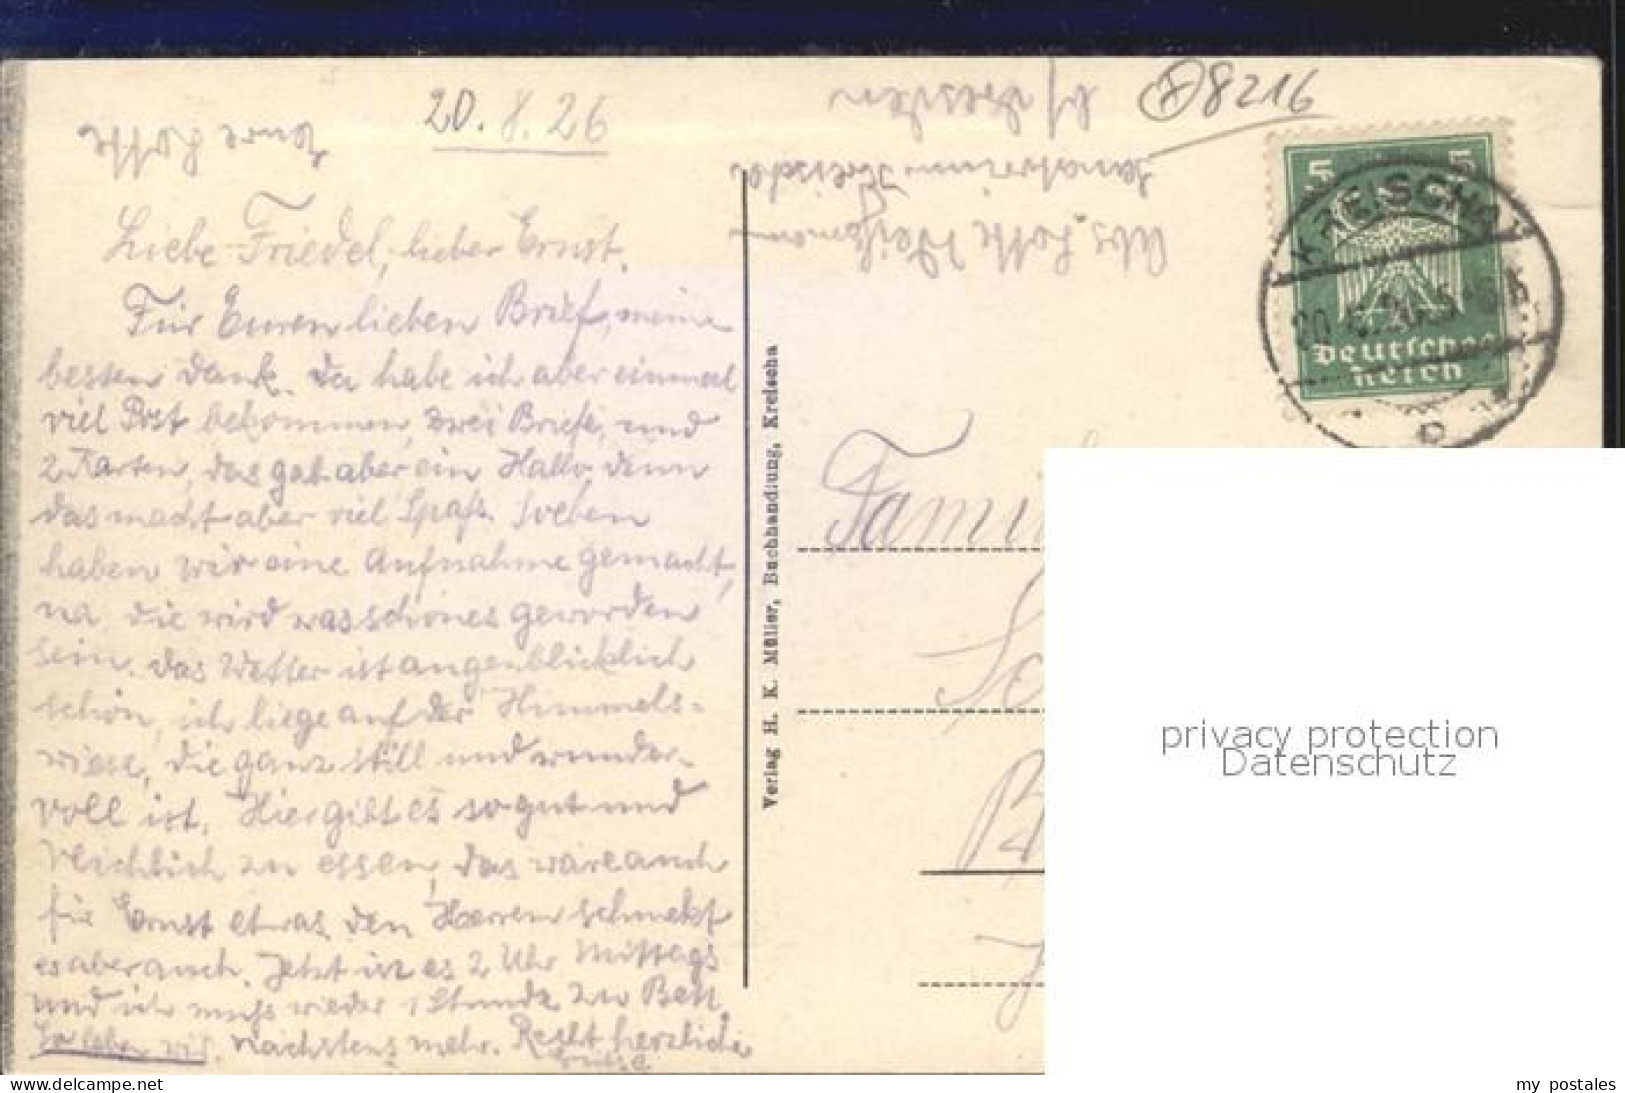 20.8.26
Liebe Friedel, lieber Ernst.
Für Euren lieben Brief, meine
besten Dank. Da habe ich aber einmal
viel Post bekommen, zwei Briefe, und
2 Karten, das gab aber ein Hallo, denn
das macht aber viel Spaß. Soeben
haben wir eine Aufnahme gemacht,
na die wird was schönes geworden
sein. Das Wetter ist augenblicklich
schön, ich liege auf der Himmels-
wiese, die ganz still und wunder-
voll ist. Hier gibt es so gut und
reichlich zu essen, das wäre auch
für Ernst etwas den Herren schmekt
es aber auch. Jetzt ist es 2 Uhr Mittags
und ich muß wieder 1 Stunde zu Bett.
So leben wir. Nächstens mehr. Recht herzliche
Grüße
Eure Lotte
Abs. Lotte
Sanatorium Kreischa
b/ Dresden
8216
5 5
Deutsches
Reich
KREISCHA
Verlag H. K. Müller, Buchhandlung, Kreischa
Fami
privacy protection
Datenschutz
https://www.delcampe.net
my postales